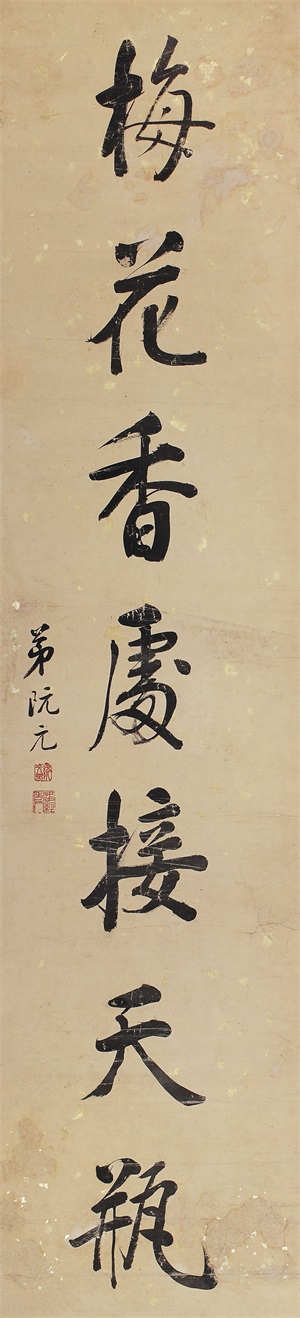 梅花香處接天瓶
弟阮元